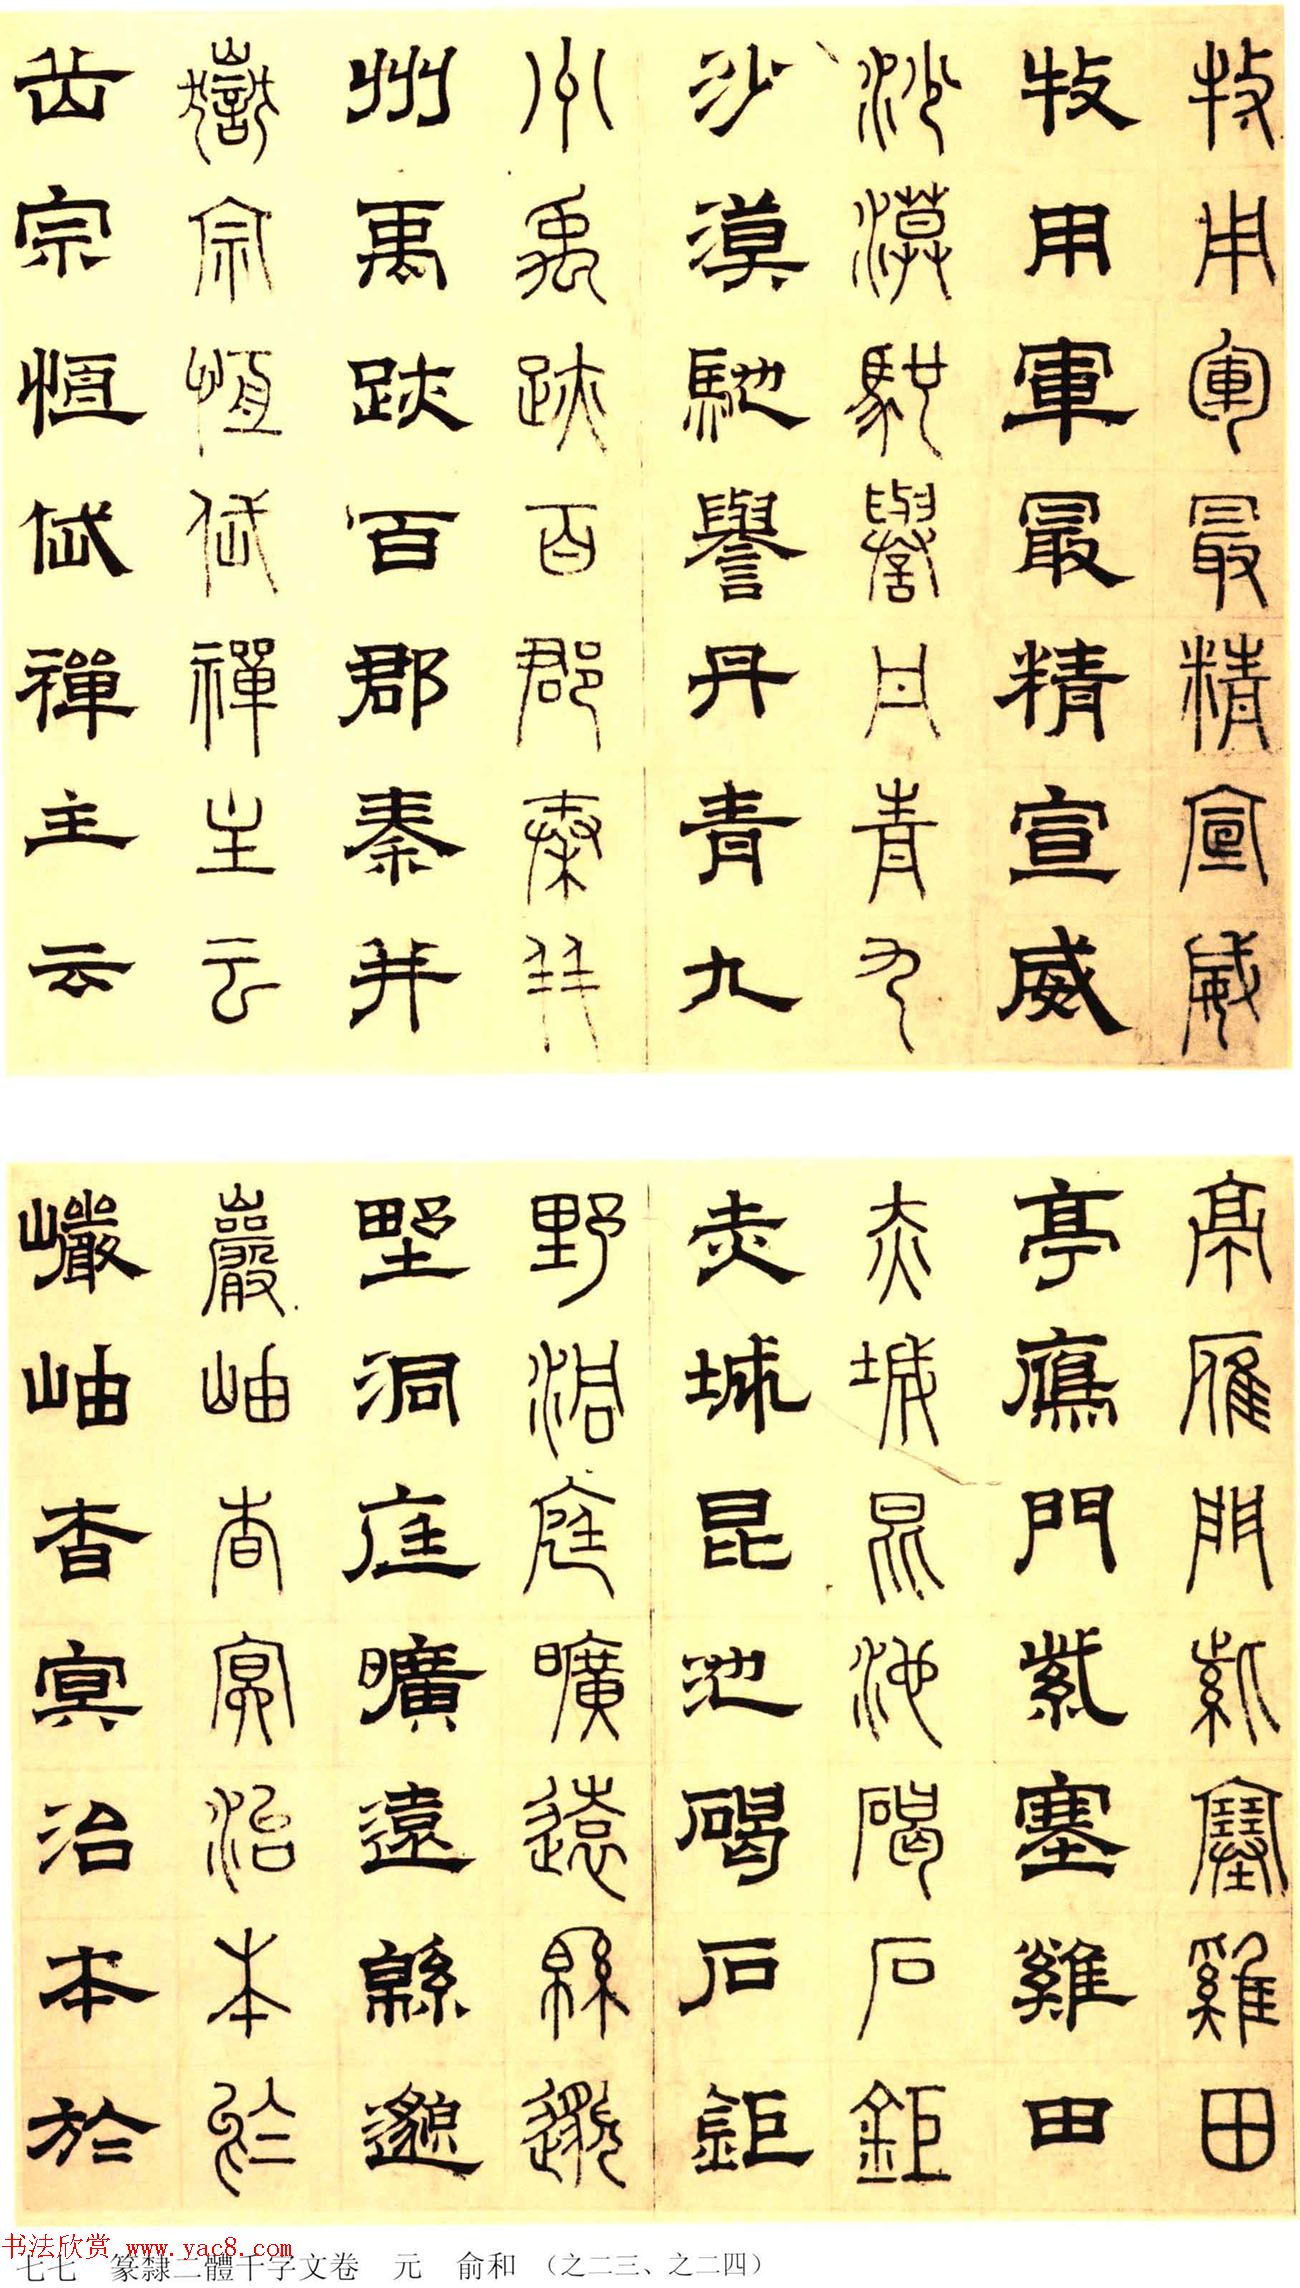 牧用軍最精宣威
牧用軍最精宣威
沙漠馳譽丹青九
沙漠馳譽丹青九
州禹跡百郡秦并
州禹跡百郡秦并
嶽宗恒岱禪主云
岳宗恒岱禪主云
亭雁門紫塞雞田
亭鴈門紫塞雞田
赤城昆池碣石鉅
赤城昆池碣石鉅
野洞庭曠遠緜邈
野洞庭曠遠緜邈
巖岫杳冥治本於
巖岫杳冥治本於
书法欣赏 www.yac8.com
七七　篆隸二體千字文卷　元　俞和　（之二三、之二四）